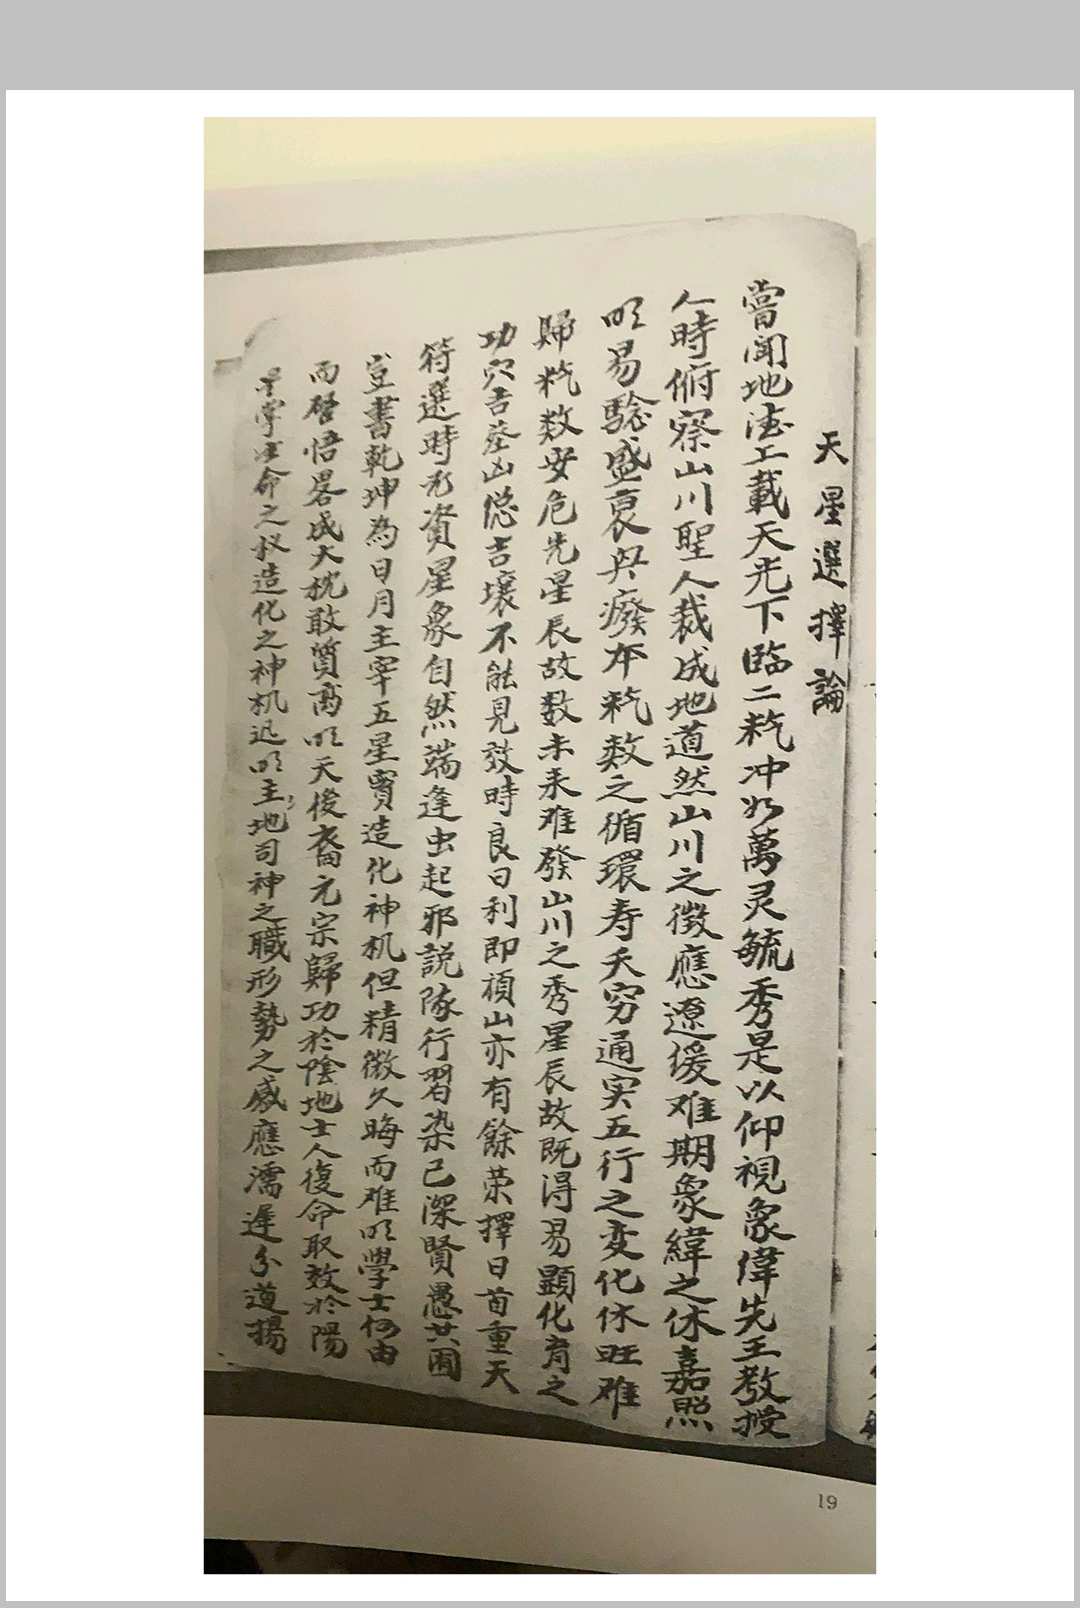 天星選擇論
嘗聞地德上載天光下臨二气冲如萬灵毓秀是以仰視象偉先王教授
人時俯察山川聖人裁成地道然山川之徵應遼缓难期象緯之休嘉照
明易騐盛衰與癈本气数之循環寿夭穷通实五行之变化休旺难
歸气数安危先星辰故数未来难發山川之秀星辰故既得易顯化育之
功穴吉葬凶怹吉壤不能見效時良日利即頑山亦有餘荣擇日首重天
符選時尤資星象自然端逢虫起邪説隊行習染已深賢愚共囿
豈書乾坤為日月主宰五星實造化神机但精微久晦而难明學士何由
而啓悟畧成大概敢質高明天後裔元宗歸功於陰地士人復命取效於陽
命之权造化之神机迅明主地司神之職形勢之感應濡遲分道揚
19